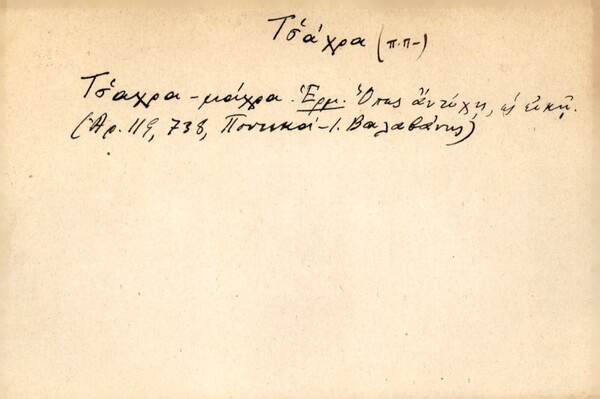 Τσ̌άχρα (π.π-)
Τσ̌αχρα-μάχρα. Ἑρμ. Ὅπως ἂν τύχῃ, ὡς εἰκῇ.
(Ἀρ. 119, 738, Ποντικαί-Ι. Βαλαβάνης)